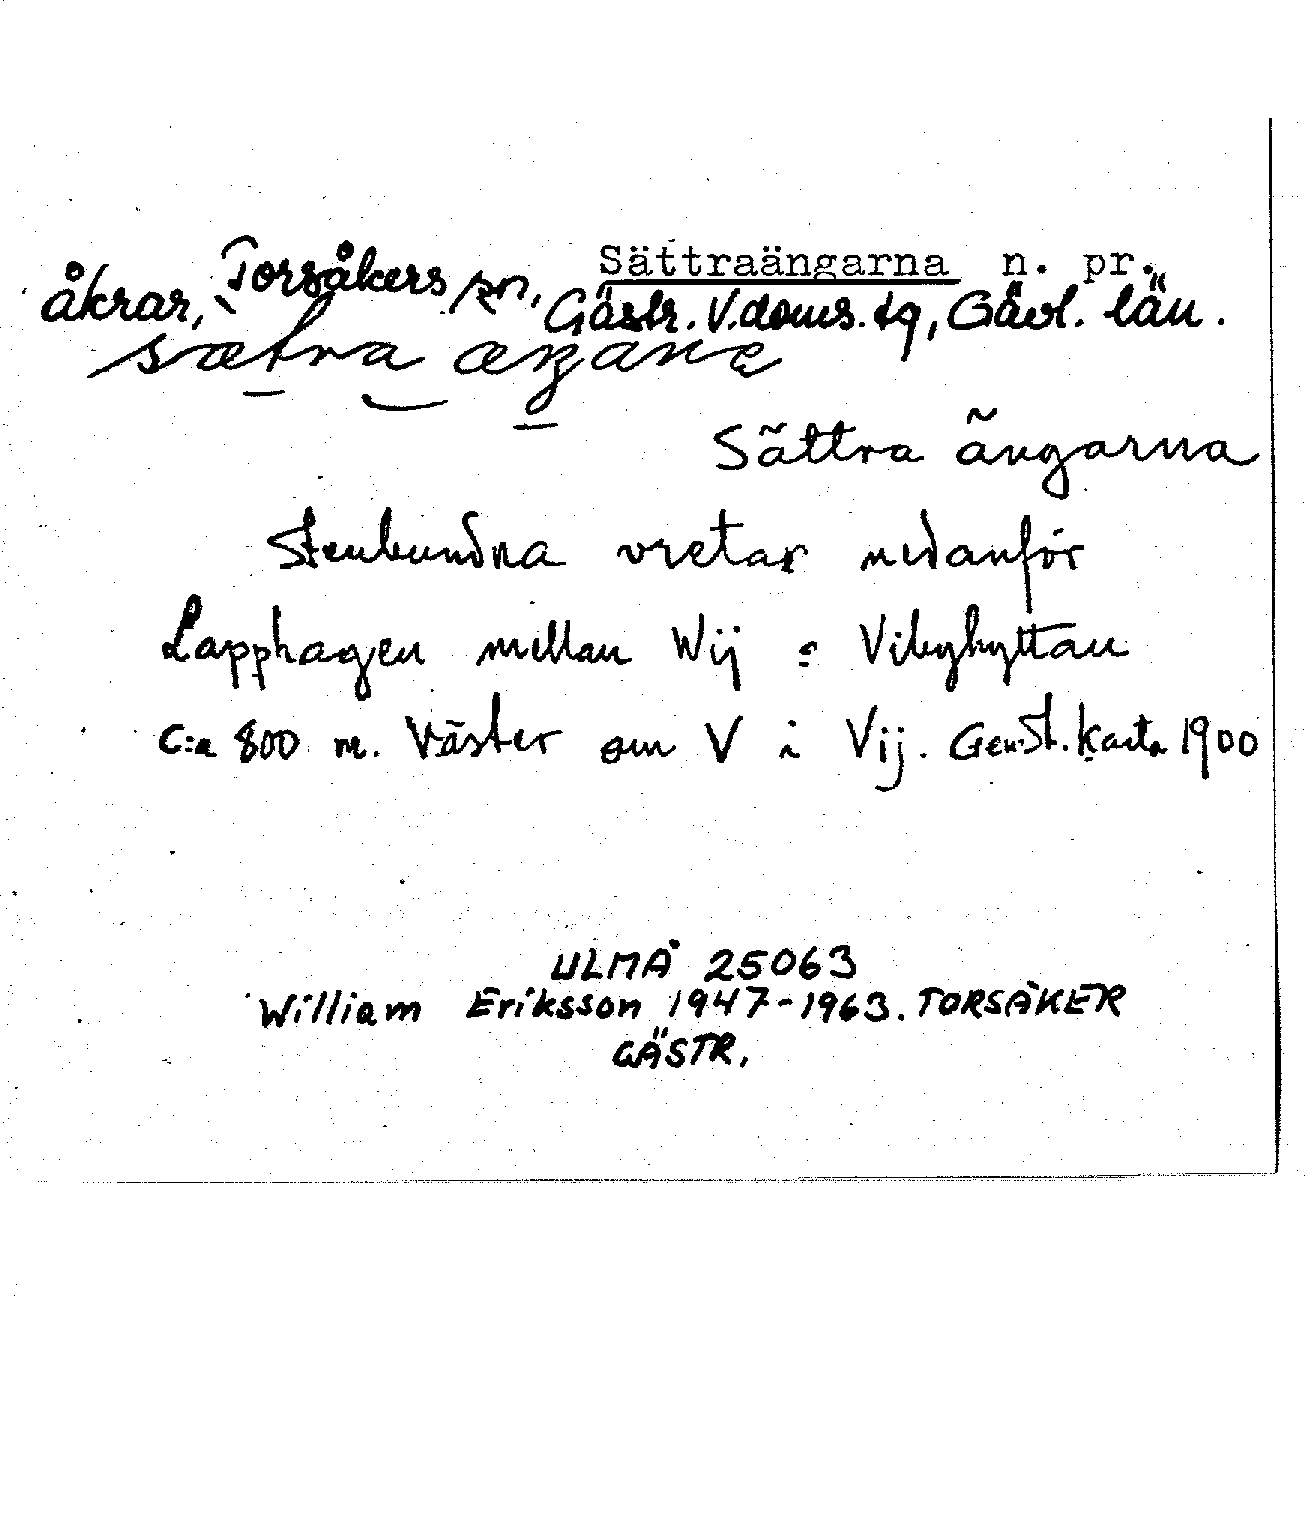 Sättraängarna n. pr.
åkrar, Torsåkers sn, Gästr. V. doms. tg, Gävl. län.
sætra æŋane
Sättra ängarna
Stenbundna vretar nedanför
Lapphagen mellan Wij o Vibyhyttan
c:a 800 m. Väster om V i Vij. Gen.St. Karta 1900
ULMA 25063
William Eriksson 1947-1963. TORSÅKER
GÄSTR.